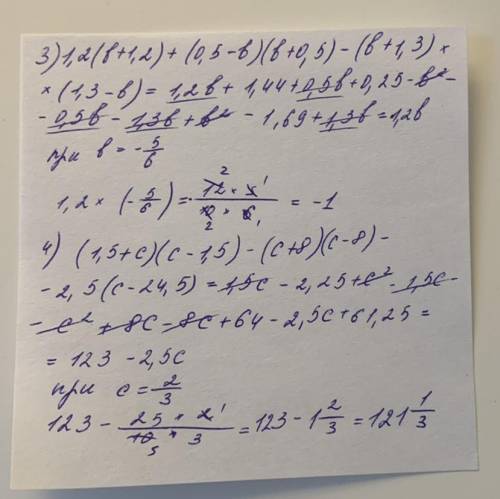 3) 1,2(в+1,2)+(0,5-в)(в+0,5)-(в+1,3)×
×(1,3-в)=1,2в+1,44+0,5в+0,25-в²-
-0,5в-1,3в+в²-1,69+1,3в=1,2в
при в=-5/6
1,2×(-5/6)=-12×5/10×6=-1
4) (1,5+с)(с-1,5)-(с+8)(с-8)-
-2,5(с-24,5)=1,5с-2,25+с²-1,5с-
-с²+8с-8с+64-2,5с+61,25=
=123-2,5с
при с=2/3
123-25×2/10×3=123-1 2/3=121 1/3